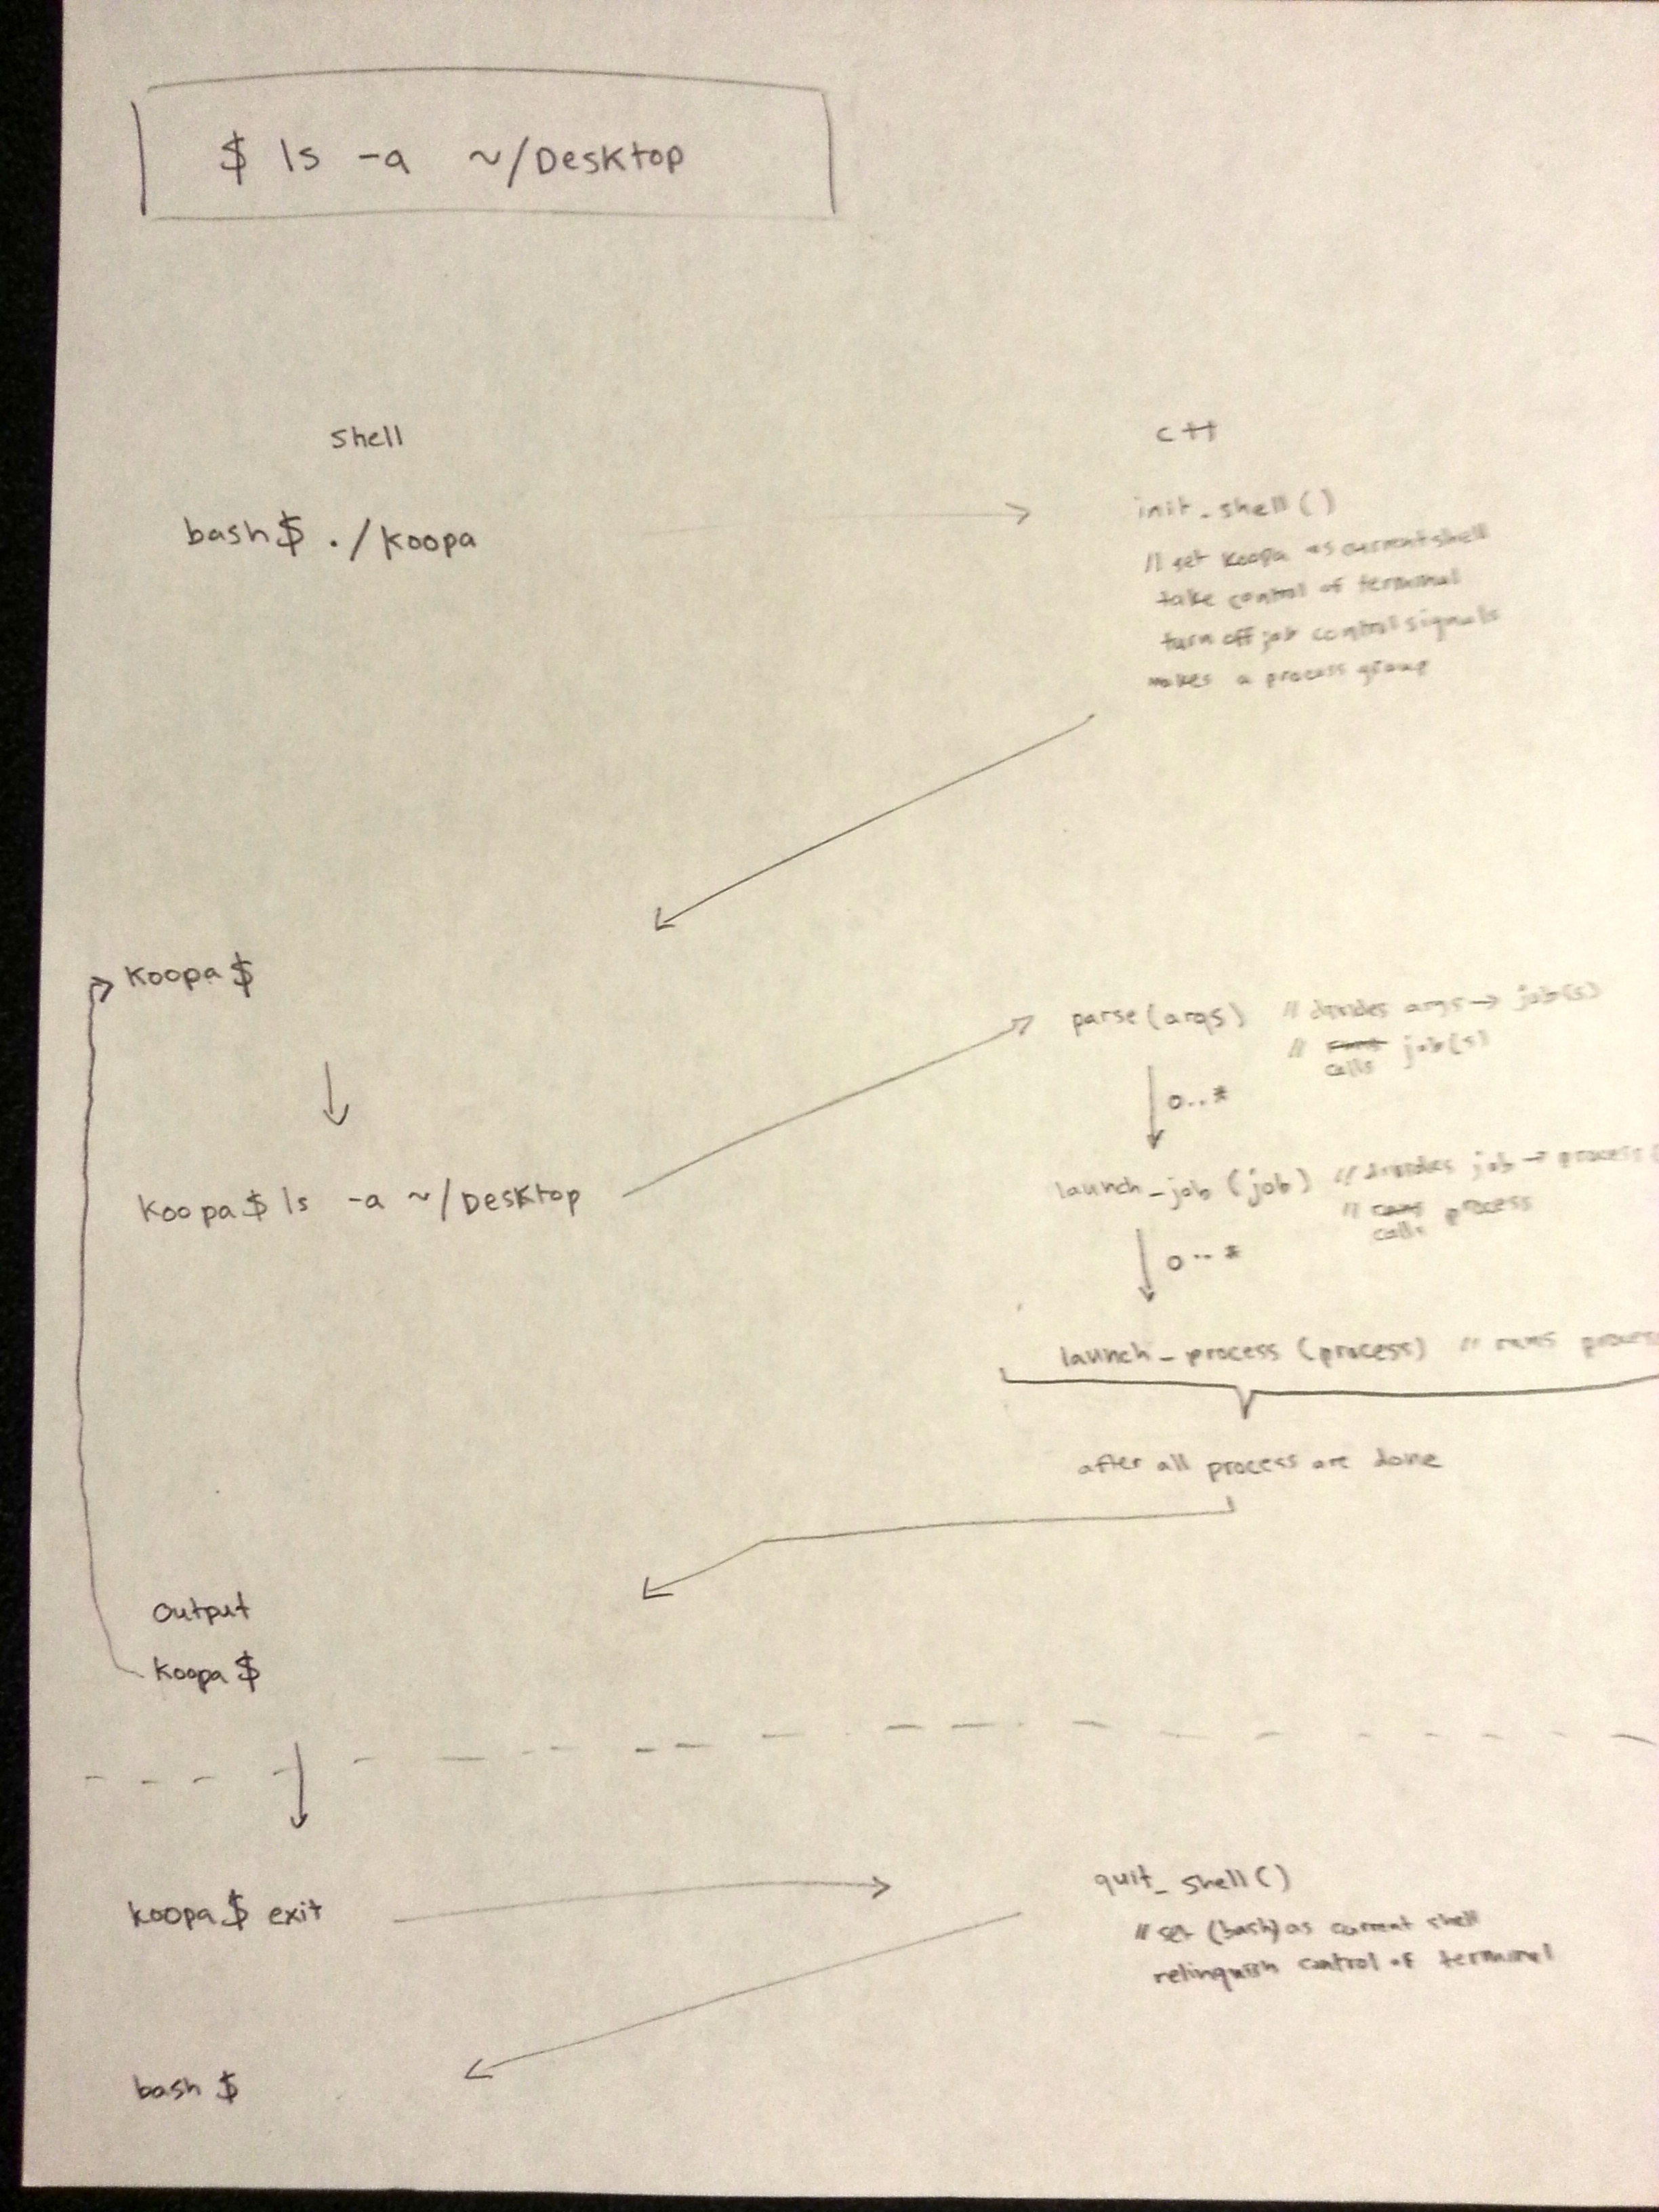 $ ls -a ~/Desktop
shell
c++
bash$ ./koopa
init_shell()
// set koopa as current shell
take control of terminal
turn off job control signals
makes a process group
koopa $
parse(args) // divides args → job(s)
// calls job(s)
0..*
koopa $ ls -a ~/Desktop
launch_job (job) // divides job → process(
// calls process
0..*
launch_process (process) // runs proces
after all process are done
output
koopa $
koopa $ exit
quit_shell()
// set (bash) as current shell
relinquish control of terminal
bash $